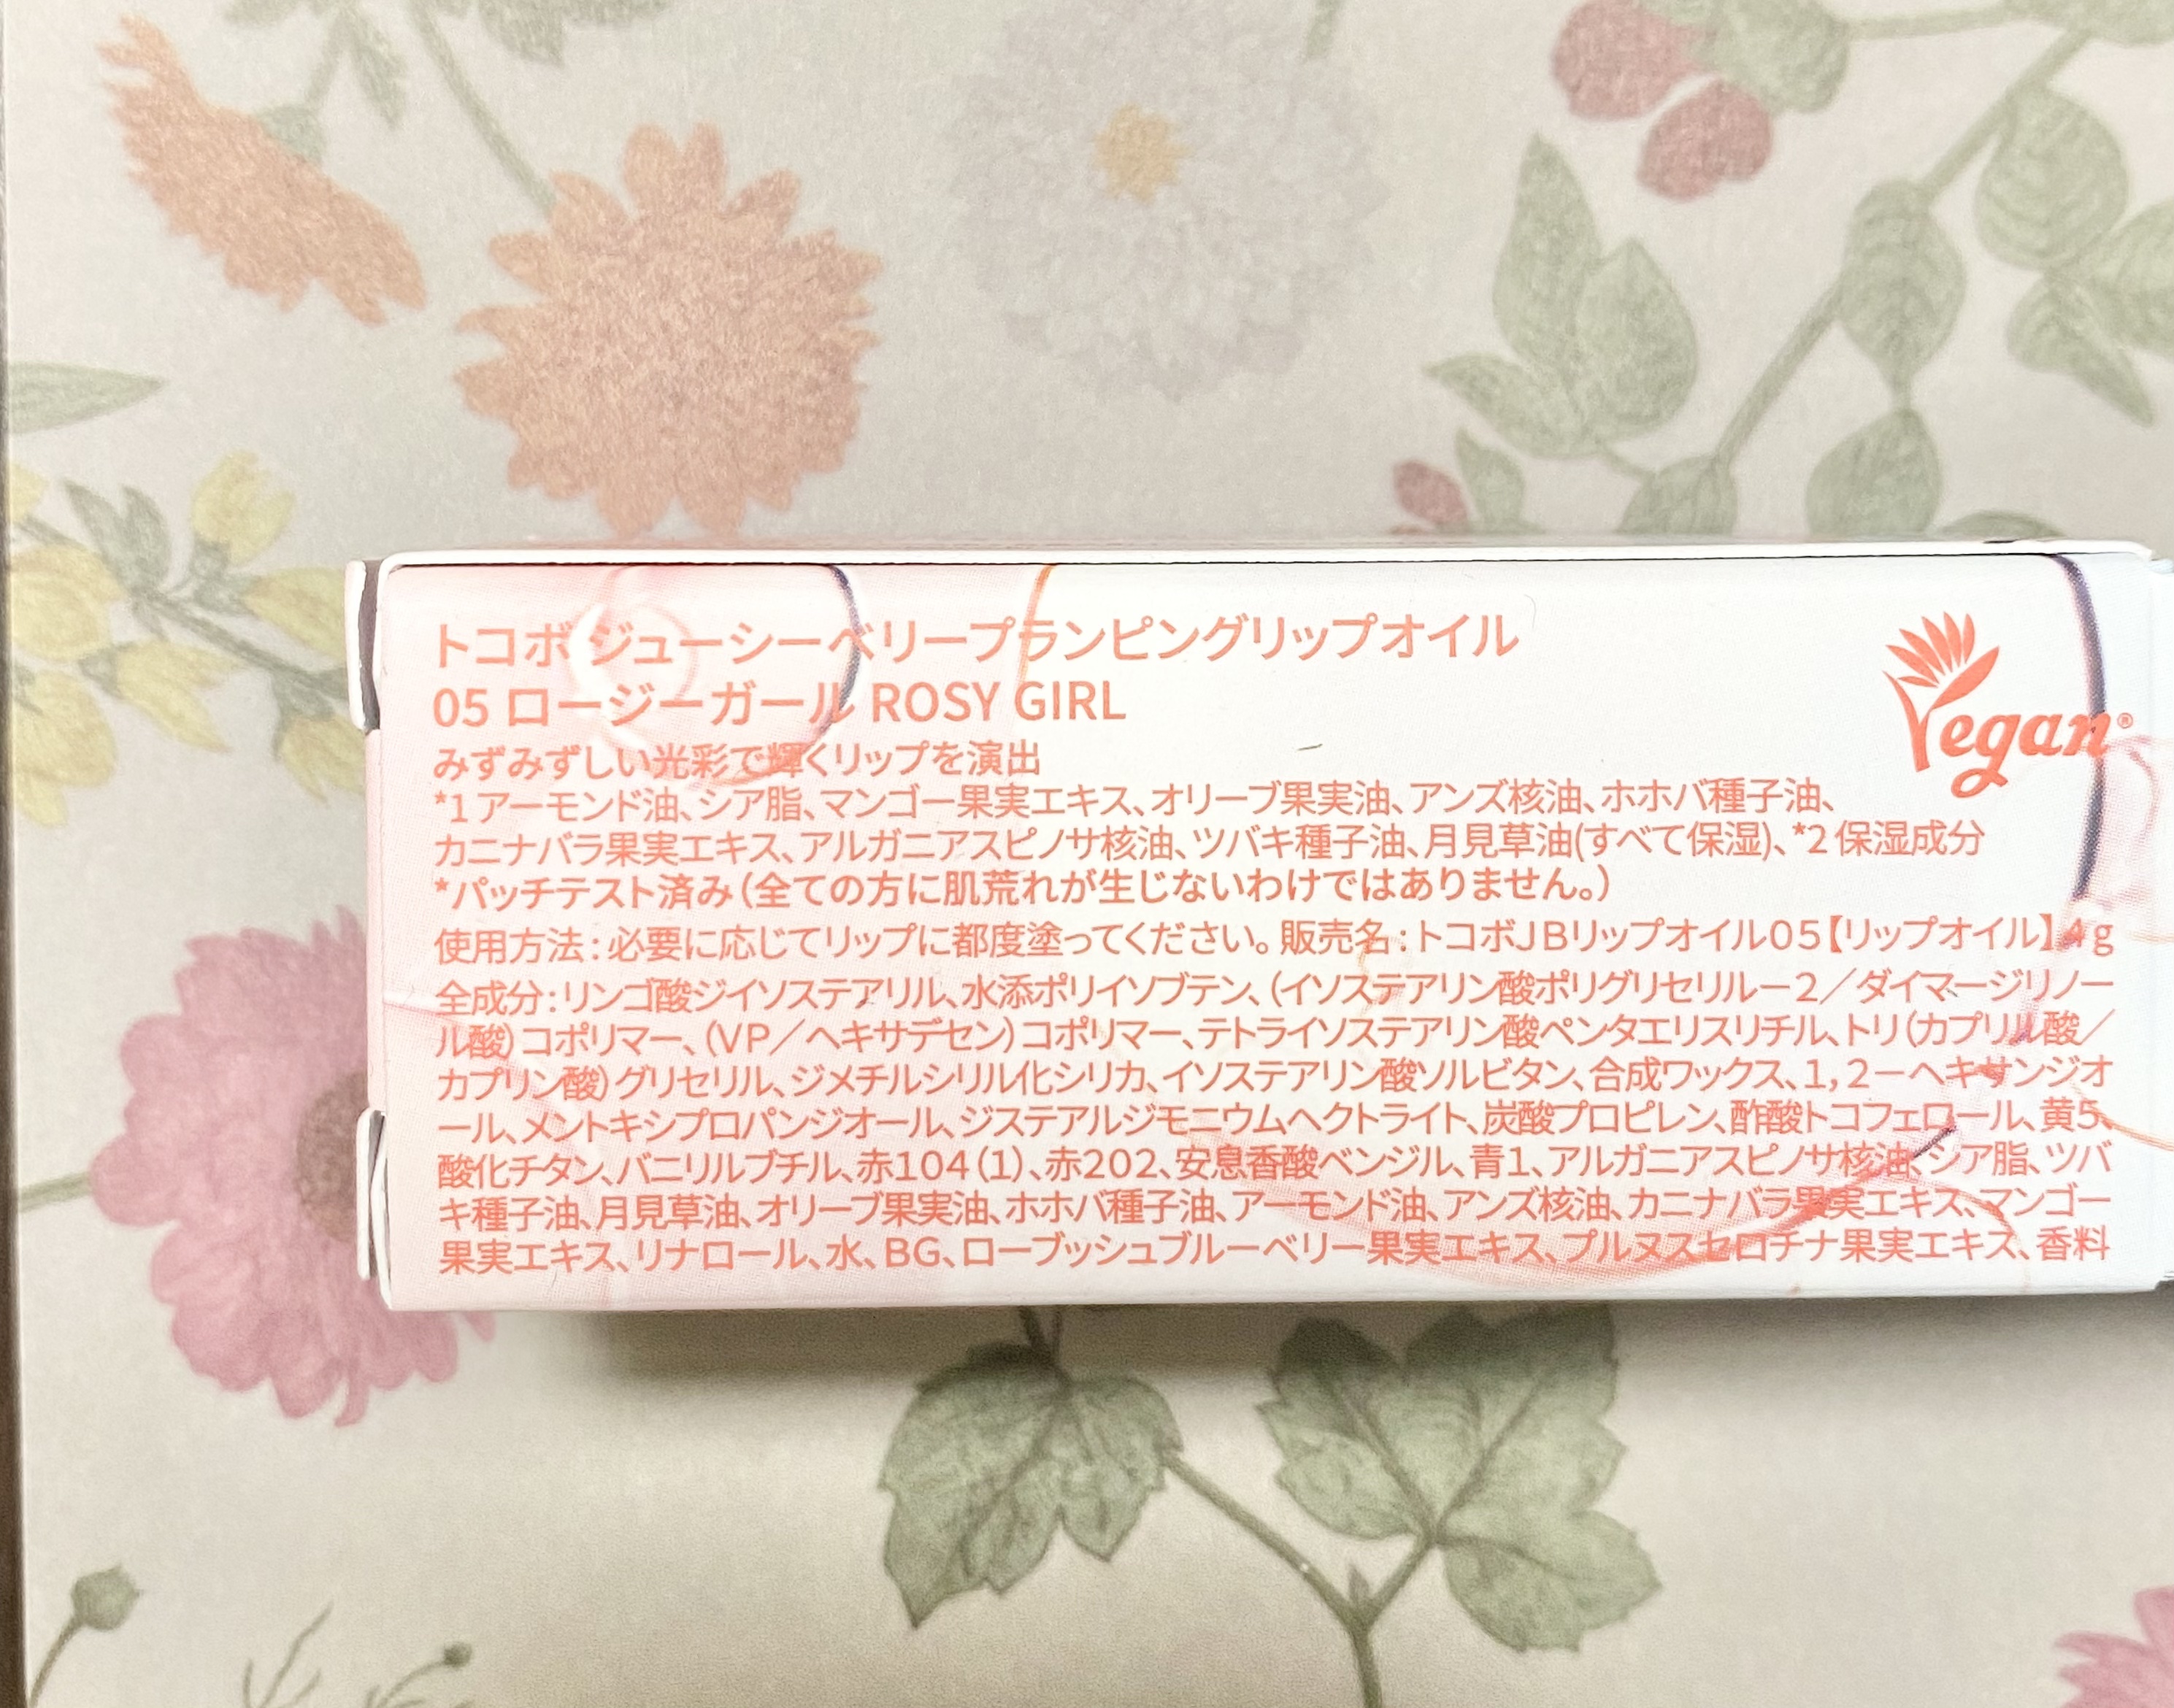 トコボ ジューシーベリープランピングリップオイル
05 ロージーガール ROSY GIRL
みずみずしい光彩で輝くリップを演出
*1 アーモンド油、シア脂、マンゴー果実エキス、オリーブ果実油、アンズ核油、ホホバ種子油、
カニナバラ果実エキス、アルガニアスピノサ核油、ツバキ種子油、月見草油(すべて保湿)、*2 保湿成分
*パッチテスト済み(全ての方に肌荒れが生じないわけではありません。)
使用方法:必要に応じてリップに都度塗ってください。販売名:トコボJBリップオイル05【リップオイル】4g
全成分:リンゴ酸ジイソステアリル、水添ポリイソブテン、(イソステアリン酸ポリグリセリル－2／ダイマージリノー
ル酸)コポリマー、(VP／ヘキサデセン)コポリマー、テトライソステアリン酸ペンタエリスリチル、トリ(カプリル酸／
カプリン酸)グリセリル、ジメチルシリル化シリカ、イソステアリン酸ソルビタン、合成ワックス、1,2－ヘキサンジオ
ール、メントキシプロパンジオール、ジステアルジモニウムヘクトライト、炭酸プロピレン、酢酸トコフェロール、黄5、
酸化チタン、バニリルブチル、赤104(1)、赤202、安息香酸ベンジル、青1、アルガニアスピノサ核油、シア脂、ツバ
キ種子油、月見草油、オリーブ果実油、ホホバ種子油、アーモンド油、アンズ核油、カニナバラ果実エキス、マンゴー
果実エキス、リナロール、水、BG、ローブッシュブルーベリー果実エキス、プルヌスセロチナ果実エキス、香料
Vegan®